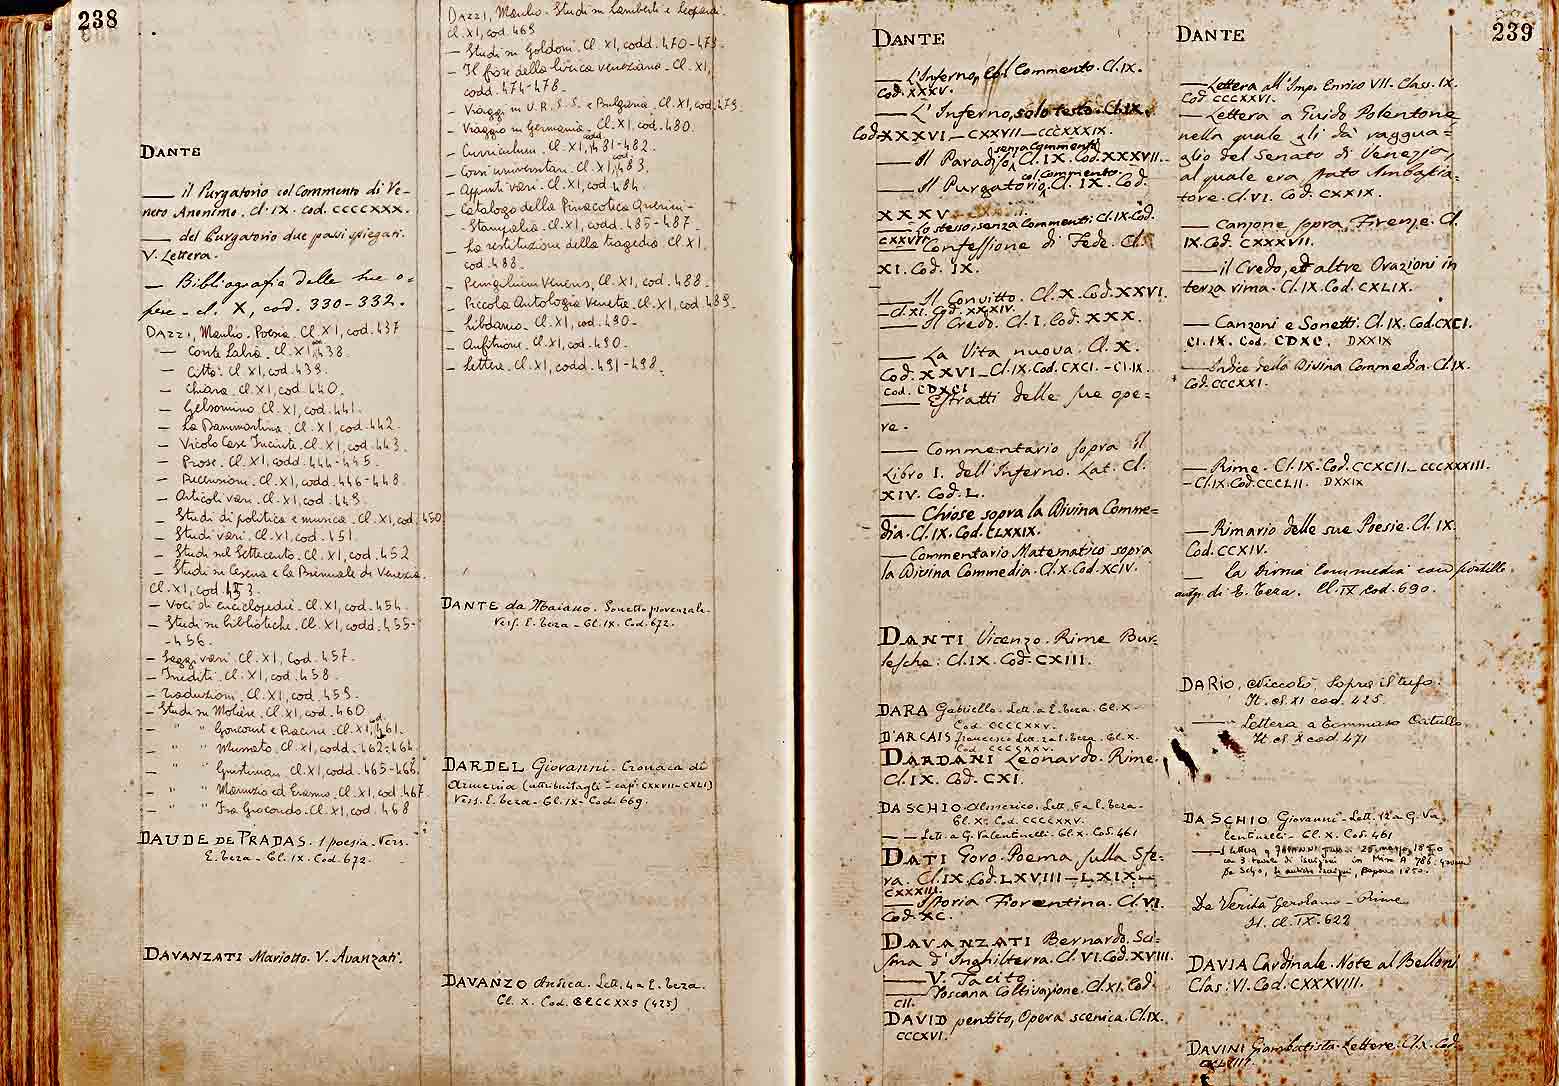 238
DANTE
— il Purgatorio col Commento di Ve-
neto Anonimo. Cl. IX. cod. CCCCXXX.
— del Purgatorio due passi spiegati.
V. Lettera.
— Bibliografia delle sue o-
pere - cl. X, cod. 330-332.
DAZZI, Manlio. Poesia. Cl. XI, cod. 437
— Conte Labia. Cl. XI, cod. 438.
— Città. Cl. XI, cod. 439.
— Chiara. Cl. XI, cod. 440.
— Gelsomino. Cl. XI, cod. 441.
— La Bammartina. Cl. XI, cod. 442.
— Vicolo Case Incinte. Cl. XI, cod. 443.
— Prose. Cl. XI, codd. 444-445.
— Recensioni. Cl. XI, codd. 446-448.
— Articoli vari. Cl. XI, cod. 449.
— Studi di politica e musica. Cl. XI, cod. 450
— Studi vari. Cl. XI, cod. 451
— Studi sul Settecento. Cl. XI, cod. 452
— Studi su Cesena e la Biennale di Venezia.
Cl. XI, cod. 453.
— Voci di enciclopedie. Cl. XI, cod. 454.
— Studi su biblioteche. Cl. XI, codd. 455-
-456.
— Saggi vari. Cl. XI, cod. 457.
— Inediti. Cl. XI, cod. 458.
— Traduzioni. Cl. XI, cod. 459.
— Studi su Molière. Cl. XI, cod. 460
— " " Goncourt e Racine. Cl. XI, cod. 461.
— " " Mussato. Cl. XI, codd. 462-464
— " " Giustinian. Cl. XI, codd. 465-466.
— " " Manuzio ed Erasmo. Cl. XI, cod. 467
— " " Fra Giocondo. Cl. XI, cod. 468
DAUDE DE PRADAS. 1 poesia. Vers.
E. Teza - Cl. IX. Cod. 672.
DAVANZATI Mariotto. V. Avanzati.
DAZZI, Manlio. Studi su Lamberti e Leopardi.
Cl. XI, cod. 469
— Studi su Goldoni. Cl. XI, codd. 470-473.
— Il fiore della lirica veneziana. Cl. XI,
codd. 474-478.
— Viaggi in U.R.S.S. e Bulgaria. Cl. XI, cod. 479.
— Viaggio in Germania. Cl. XI, cod. 480.
— Curriculum. Cl. XI, codd. 481-482.
— Corsi universitari. Cl. XI, cod. 483.
— Appunti vari. Cl. XI, cod. 484.
— Catalogo della Pinacoteca Querini-
Stampalia. Cl. XI, codd. 485-487.
— La restituzione della tragedia. Cl. XI.
cod. 488.
— Pervigilium Veneris. Cl. XI, cod. 488.
— Piccola Antologia Veneta. Cl. XI, cod. 489.
— Libdanio. Cl. XI, cod. 490.
— Anfitrione. Cl. XI, cod. 490.
— Lettere. Cl. XI, codd. 491-498.
DANTE da Maiano. Sonetto provenzale.
Vers. E. Teza - Cl. IX. Cod. 672.
DARDEL Giovanni. Cronaca di
Armenia (attribuitagli - capi CXXVII-CXLI)
Vers. E. Teza - Cl. IX - Cod. 669.
DAVANZO Andrea. Lett. 4 a E. Teza.
Cl. X. Cod. CCCCXXV (425)
DANTE
— L'Inferno, col Commento. Cl. IX.
Cod. XXXV.
— L'Inferno, solo testo. Cl. IX.
Cod. XXXVI — CXXVII — CCCXXXIX.
— Il Paradiso, senza commenti Cl. IX. Cod. XXXVII.
— Il Purgatorio, col commento. Cl. IX. Cod.
XXXV.
— Lo stesso, senza Commenti. Cl. IX. Cod.
CXXVIII
— Confessione di Fede. Cl.
XI. Cod. IX.
— Il Convitto. Cl. X. Cod. XXVI.
— Cl. XI. Cod. XXXIV.
— Il Credo. Cl. I. Cod. XXX.
— La Vita nuova. Cl. X.
Cod. XXVI — Cl. IX. Cod. CXCI. — Cl. IX.
Cod. CDXCI
— Estratti delle sue ope=
re.
— Commentario sopra il
Libro I. dell'Inferno. Lat. Cl.
XIV. Cod. L.
— Chiose sopra la Divina Comme=
dia. Cl. IX. Cod. CLXXIX.
— Commentario Matematico sopra
la Divina Commedia. Cl. X. Cod. XCIV.
DANTI Vicenzo. Rime Bur=
lesche: Cl. IX. Cod. CXIII.
DARA Gabriello. Lett. a E. Teza. Cl. X.
Cod. CCCCXXV.
D'ARCAIS Francesco Lett. 2 a E. Teza. Cl. X.
Cod. CCCCXXV.
DARDANI Leonardo. Rime.
Cl. IX. Cod. CXI.
DA SCHIO Almerico. Lett. 6 a E. Teza -
Cl. X. Cod. CCCCXXV.
— — Lett. a G. Valentinelli. Cl. X. Cod. 461
DATI Goro. Poema sulla Sfe=
ra. Cl. IX. Cod. LXVIII — LXIX —
CXXXIII.
— Istoria Fiorentina. Cl. VI.
Cod. XC.
DAVANZATI Bernardo. Sci=
sma d'Inghilterra. Cl. VI. Cod. XVIII.
— V. Tacito.
— Toscana Coltivazione. Cl. XI. Cod.
CII.
DAVID pentito, Opera scenica. Cl. IX.
CCCXVI.
DANTE
239
— Lettera all'Imp. Enrico VII. Class. IX.
Cod. CCCXXVI.
— Lettera a Guido Polentone
nella quale gli dà raggua=
glio del Senato di Venezia,
al quale era stato Ambascia=
tore. Cl. VI. Cod. CXXIX.
— Canzone sopra Firenze. Cl.
IX. Cod. CXXXVII.
— il Credo, ed altre Orazioni in
terza rima. Cl. IX. Cod. CXLIX.
— Canzoni e Sonetti. Cl. IX. Cod. CXCI.
Cl. IX. Cod. CDXC. DXXIX
— Indice della Divina Commedia. Cl. IX.
Cod. CCCXXI.
— Rime. Cl. IX. Cod. CCXCII — CCCXXXIII.
— Cl. IX. Cod. CCCLII. DXXIX
— Rimario delle sue Poesie. Cl. IX.
Cod. CCXIV.
— La Divina Commedia con postille
autogr. di E. Teza. Cl. IX cod. 690.
DARIO, Niccolò Sopra il tufo.
It. cl. XI cod. 425.
— Lettera a Tommaso Catullo.
It. cl. X cod 471
DA SCHIO Giovanni - Lett. 12 a G. Va
lentinelli - Cl. X. Cod. 461
— 1 lettera a
Da Verità Gerolamo - Rime
It. Cl. IX. 622
DAVIA Cardinale. Note al Belloni
Clas: VI. Cod. CXXXVIII.
DAVINI Giambatista. Lettere. Cl. X. Cod.